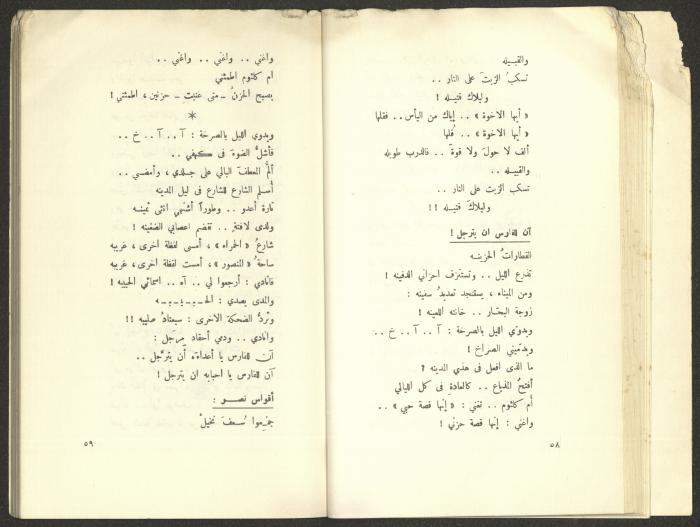 والقبيله
تسكبُ الزيتَ على النار ..
وليلاك قتيله !
« أيها الاخوة » .. إياك من اليأس .. فقلها
« أيها الاخوة » .. قلها
ألف لا حولَ ولا قوة .. فالدرب طويله
والقبيله ..
تسكب الزيت على النار ..
وليلاكَ قتيله !!
آن للفارس ان يترجل !
القطاراتُ الحزينه
تذرع الليل .. وتستنزف احزاني الدفينه !
ومن الميناء ، يستنجد تعديدُ سفينه :
زوجة البحّار .. خانته اللعينه !
ويدوّي الليل بالصرخة : آ .. آ .. خ ..
ويدميني الصراخ !
ما الذى افعل فى هذي المدينه ؟
أفتحُ المذياع .. كالعادةِ فى كل الليالي
أم كلثوم .. تغني : « إنها قصة حبي » ..
واغني : إنها قصة حزني !
٥٨
واغني .. واغني .. واغني ..
ام كلثوم اطمئني
يصبح الحزنُ ــ متى غنيتِ ــ حزنين ، اطمئني !
*
ويدوي الليل بالصرخة : آ .. آ .. خ ..
فأشلُّ الضوءَ فى كهفي ..
ألمُّ المعطف البالي على جلدي ، وأمضي ..
أسلم الشارع للشارع في ليل المدينه
تارة أعدو .. وطوراً أشتهي انثى ثمينه
ولدى لافتةٍ .. تقضم اعصابي الضغينه !
شارعُ « الحمراء » ، أمسى لفظة اخرى ، غريبه
ساحةُ « المنصور » ، أمست لفظة اخرى ، غريبه
فانادي : أرجعوا لي .. آه .. اسمائي الحبيبه !
والمدى يصدي : الحـ ـ بـ ـ يـ ـ بـ ـه
وتردُّ الضحكة الاخرى : سيعتادُ صليبه !!
وانادي .. ودمي أحقاد مِرجَل :
آن للفارس يا أعداءه أن يترجَّل ..
آن للفارس يا احبابه ان يترجل !
أقواس نصر :
جهزموا سُعفَ نخيلْ
٥٩